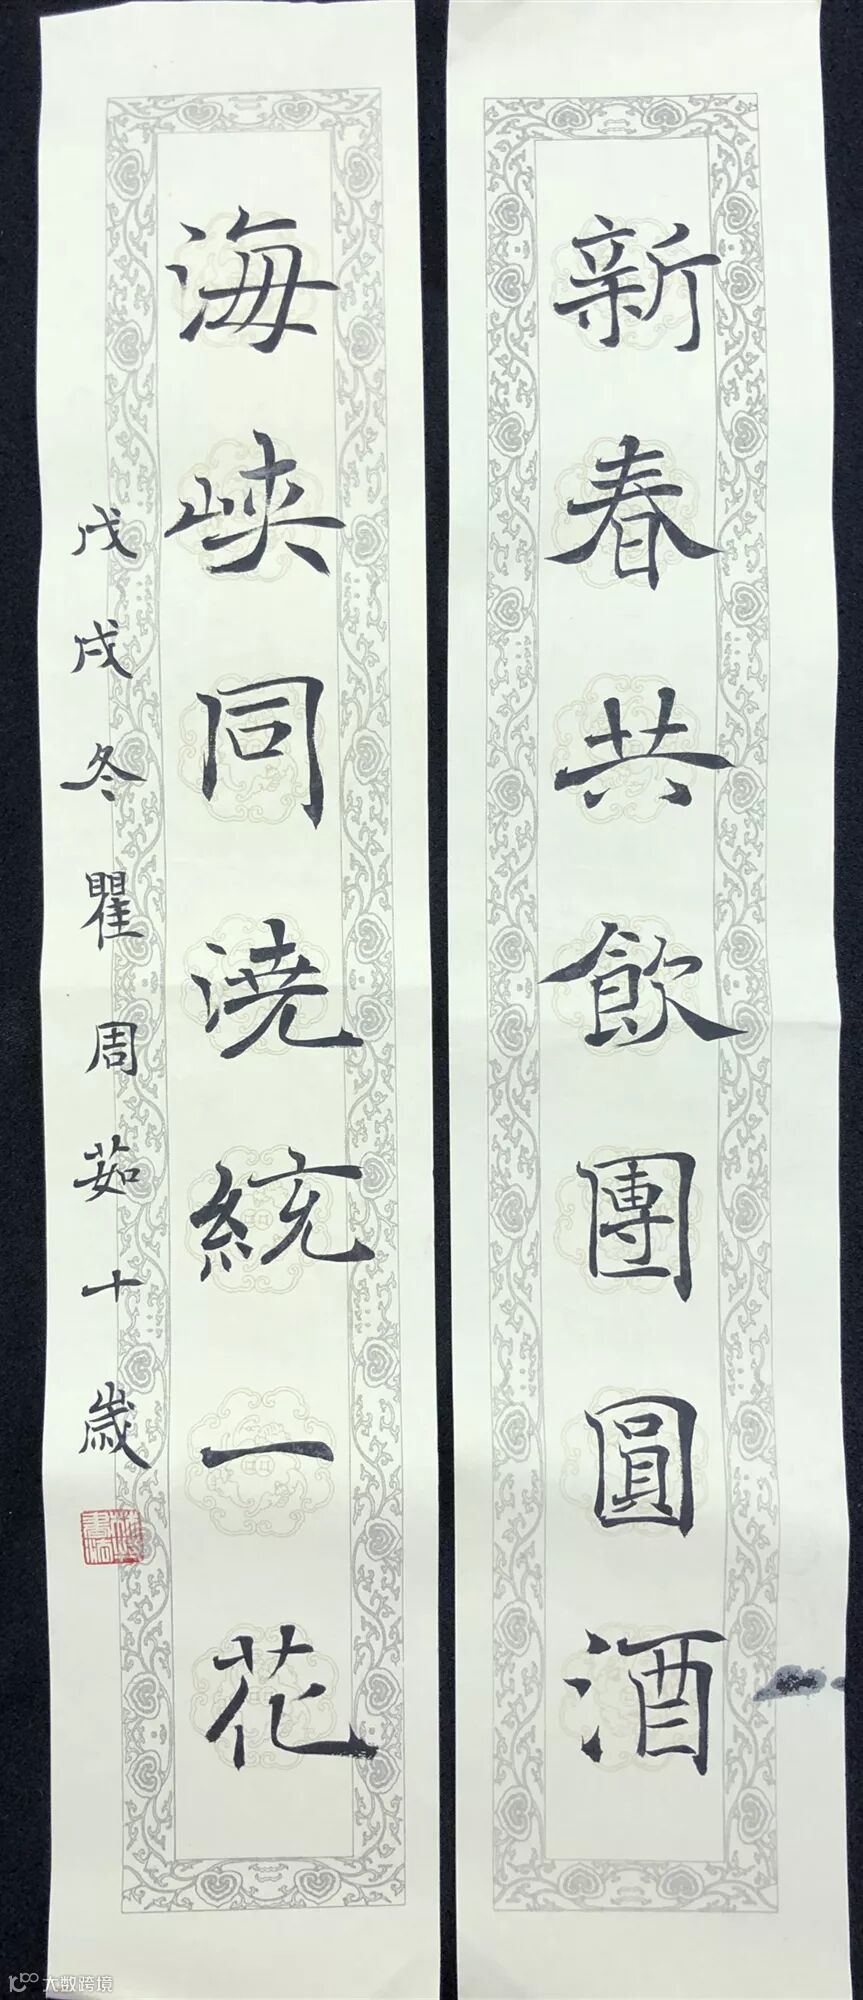 新春共飲團圓酒
海峽同澆統一花
戊戌冬瞿周茹十歲
大数跨境